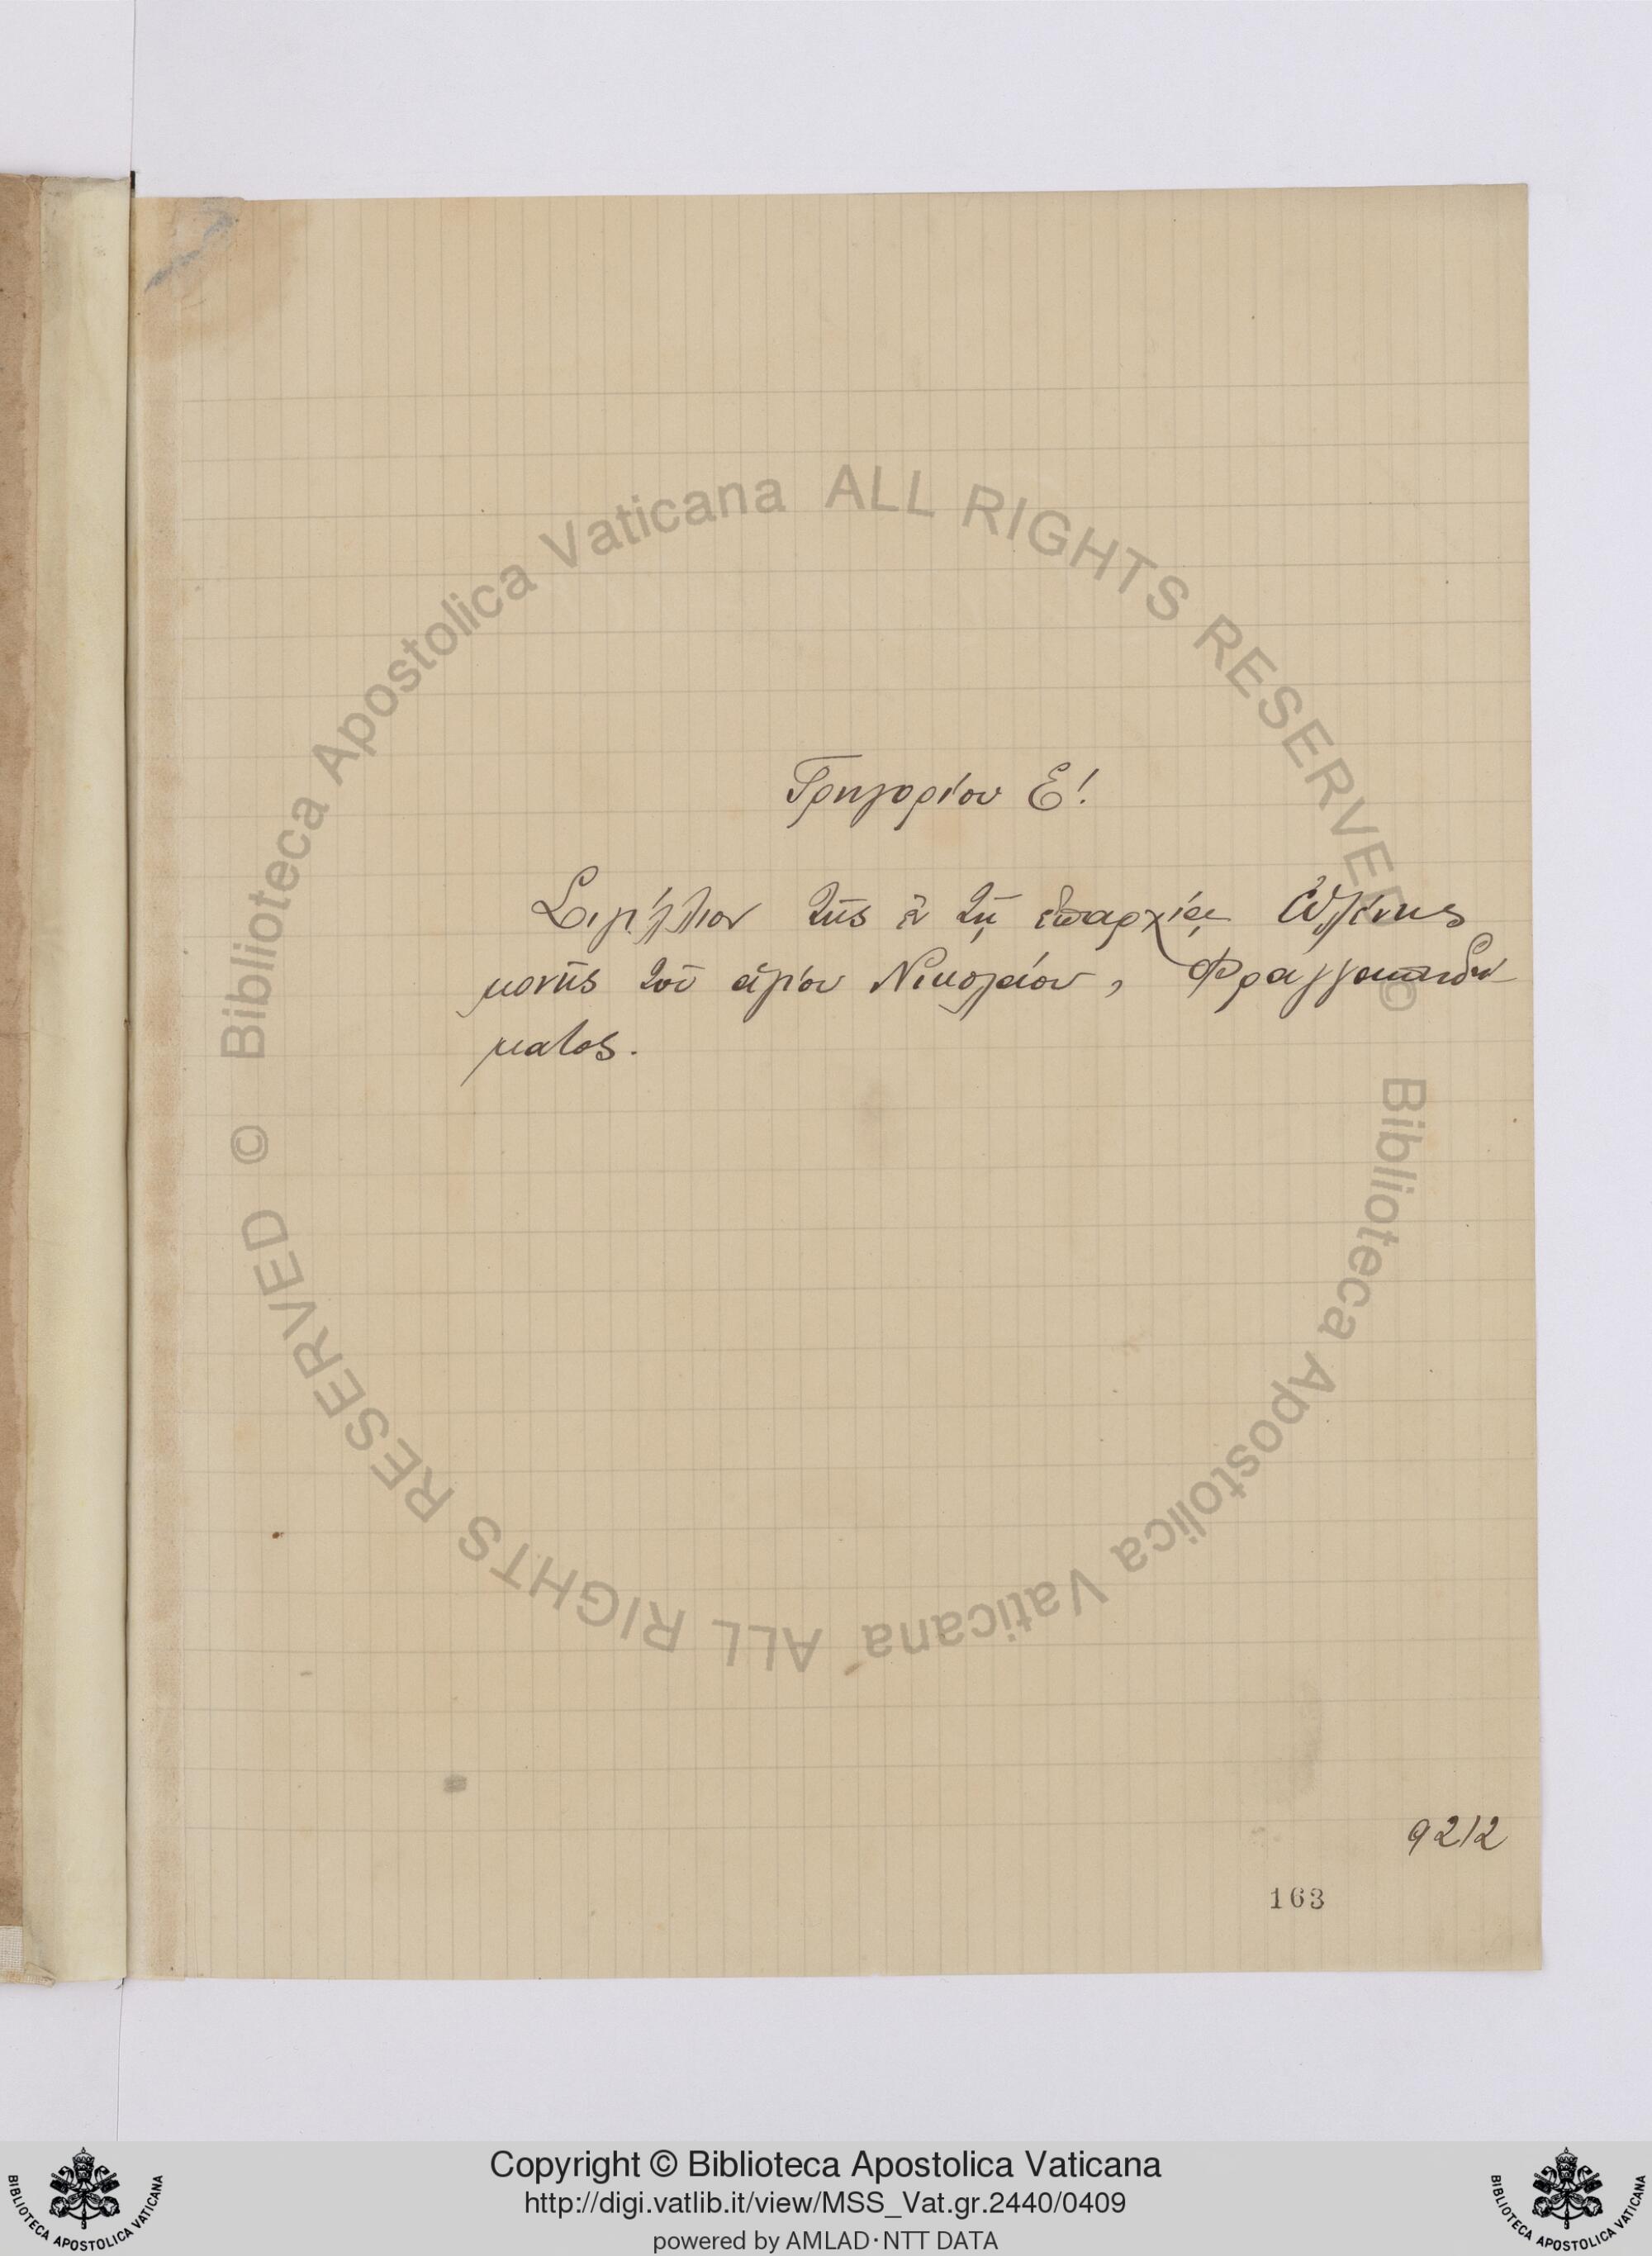 Γρηγορίου Ε'.
Σιγίλλιον τῆς ἐν τῇ ἐπαρχίᾳ Ὠλένης
μονῆς τοῦ ἁγίου Νικολάου, Φραγγοπηδή
ματος.
9212
163
Biblioteca Apostolica Vaticana ALL RIGHTS RESERVED ©
Biblioteca Apostolica Vaticana ALL RIGHTS RESERVED ©
Copyright © Biblioteca Apostolica Vaticana
http://digi.vatlib.it/view/MSS_Vat.gr.2440/0409
powered by AMLAD·NTT DATA
BIBLIOTECA APOSTOLICA VATICANA
BIBLIOTECA APOSTOLICA VATICANA